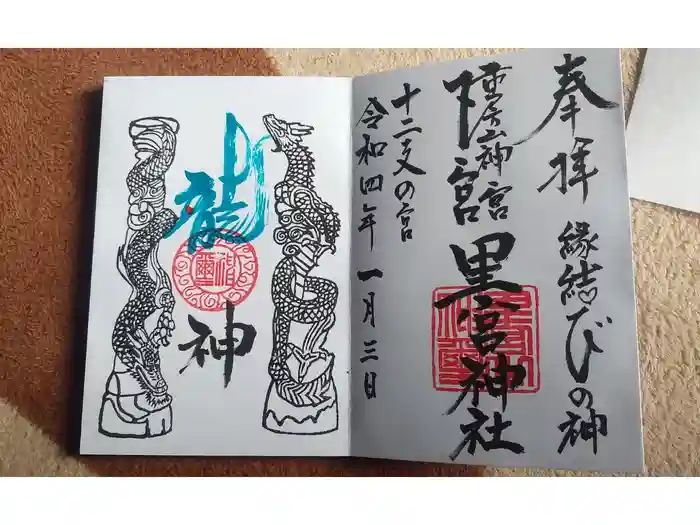 奉拝
縁結びの神
山神宮
宮 里宮神社
十二支の宮
令和四年 一月三日
龍
神